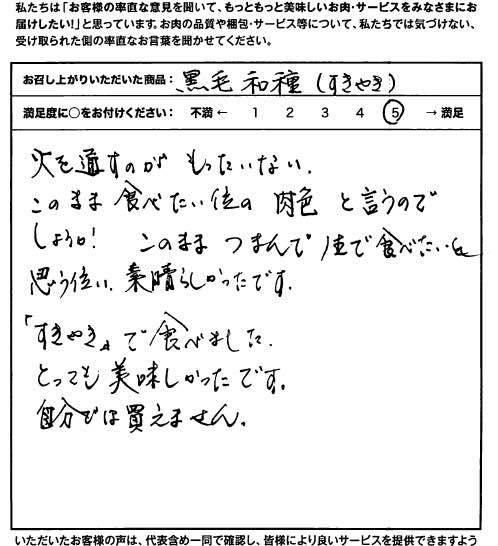 私たちは「お客様の率直な意見を聞いて、もっともっと美味しいお肉・サービスをみなさまにお
届けしたい！」と思っています。お肉の品質や梱包・サービス等について、私たちでは気づけない、
受け取られた側の率直なお言葉を聞かせてください。
お召し上がりいただいた商品： 黒毛和種(すきやき)
満足度に○をお付けください： 不満 ← 1 2 3 4 5 → 満足
火を通すのが もったいない.
このまま 食べたい位の 肉色 と言うので
しょうか! このまま つまんで 生で食べたいと
思う位い. 素晴らしかったです.
「すきやき」で食べました.
とっても 美味しかったです.
自分では買えません.
いただいたお客様の声は、代表含め一同で確認し、皆様により良いサービスを提供できますよう